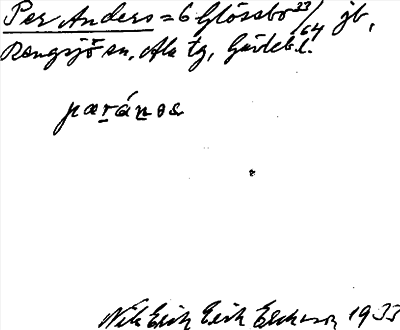 Per Anders = 6 Glössbo 33/64 jb,
Rengsjö sn, Ala tg, Gävleb. l.
pæránɒs
Nils Erik Erik Eriksson 1933